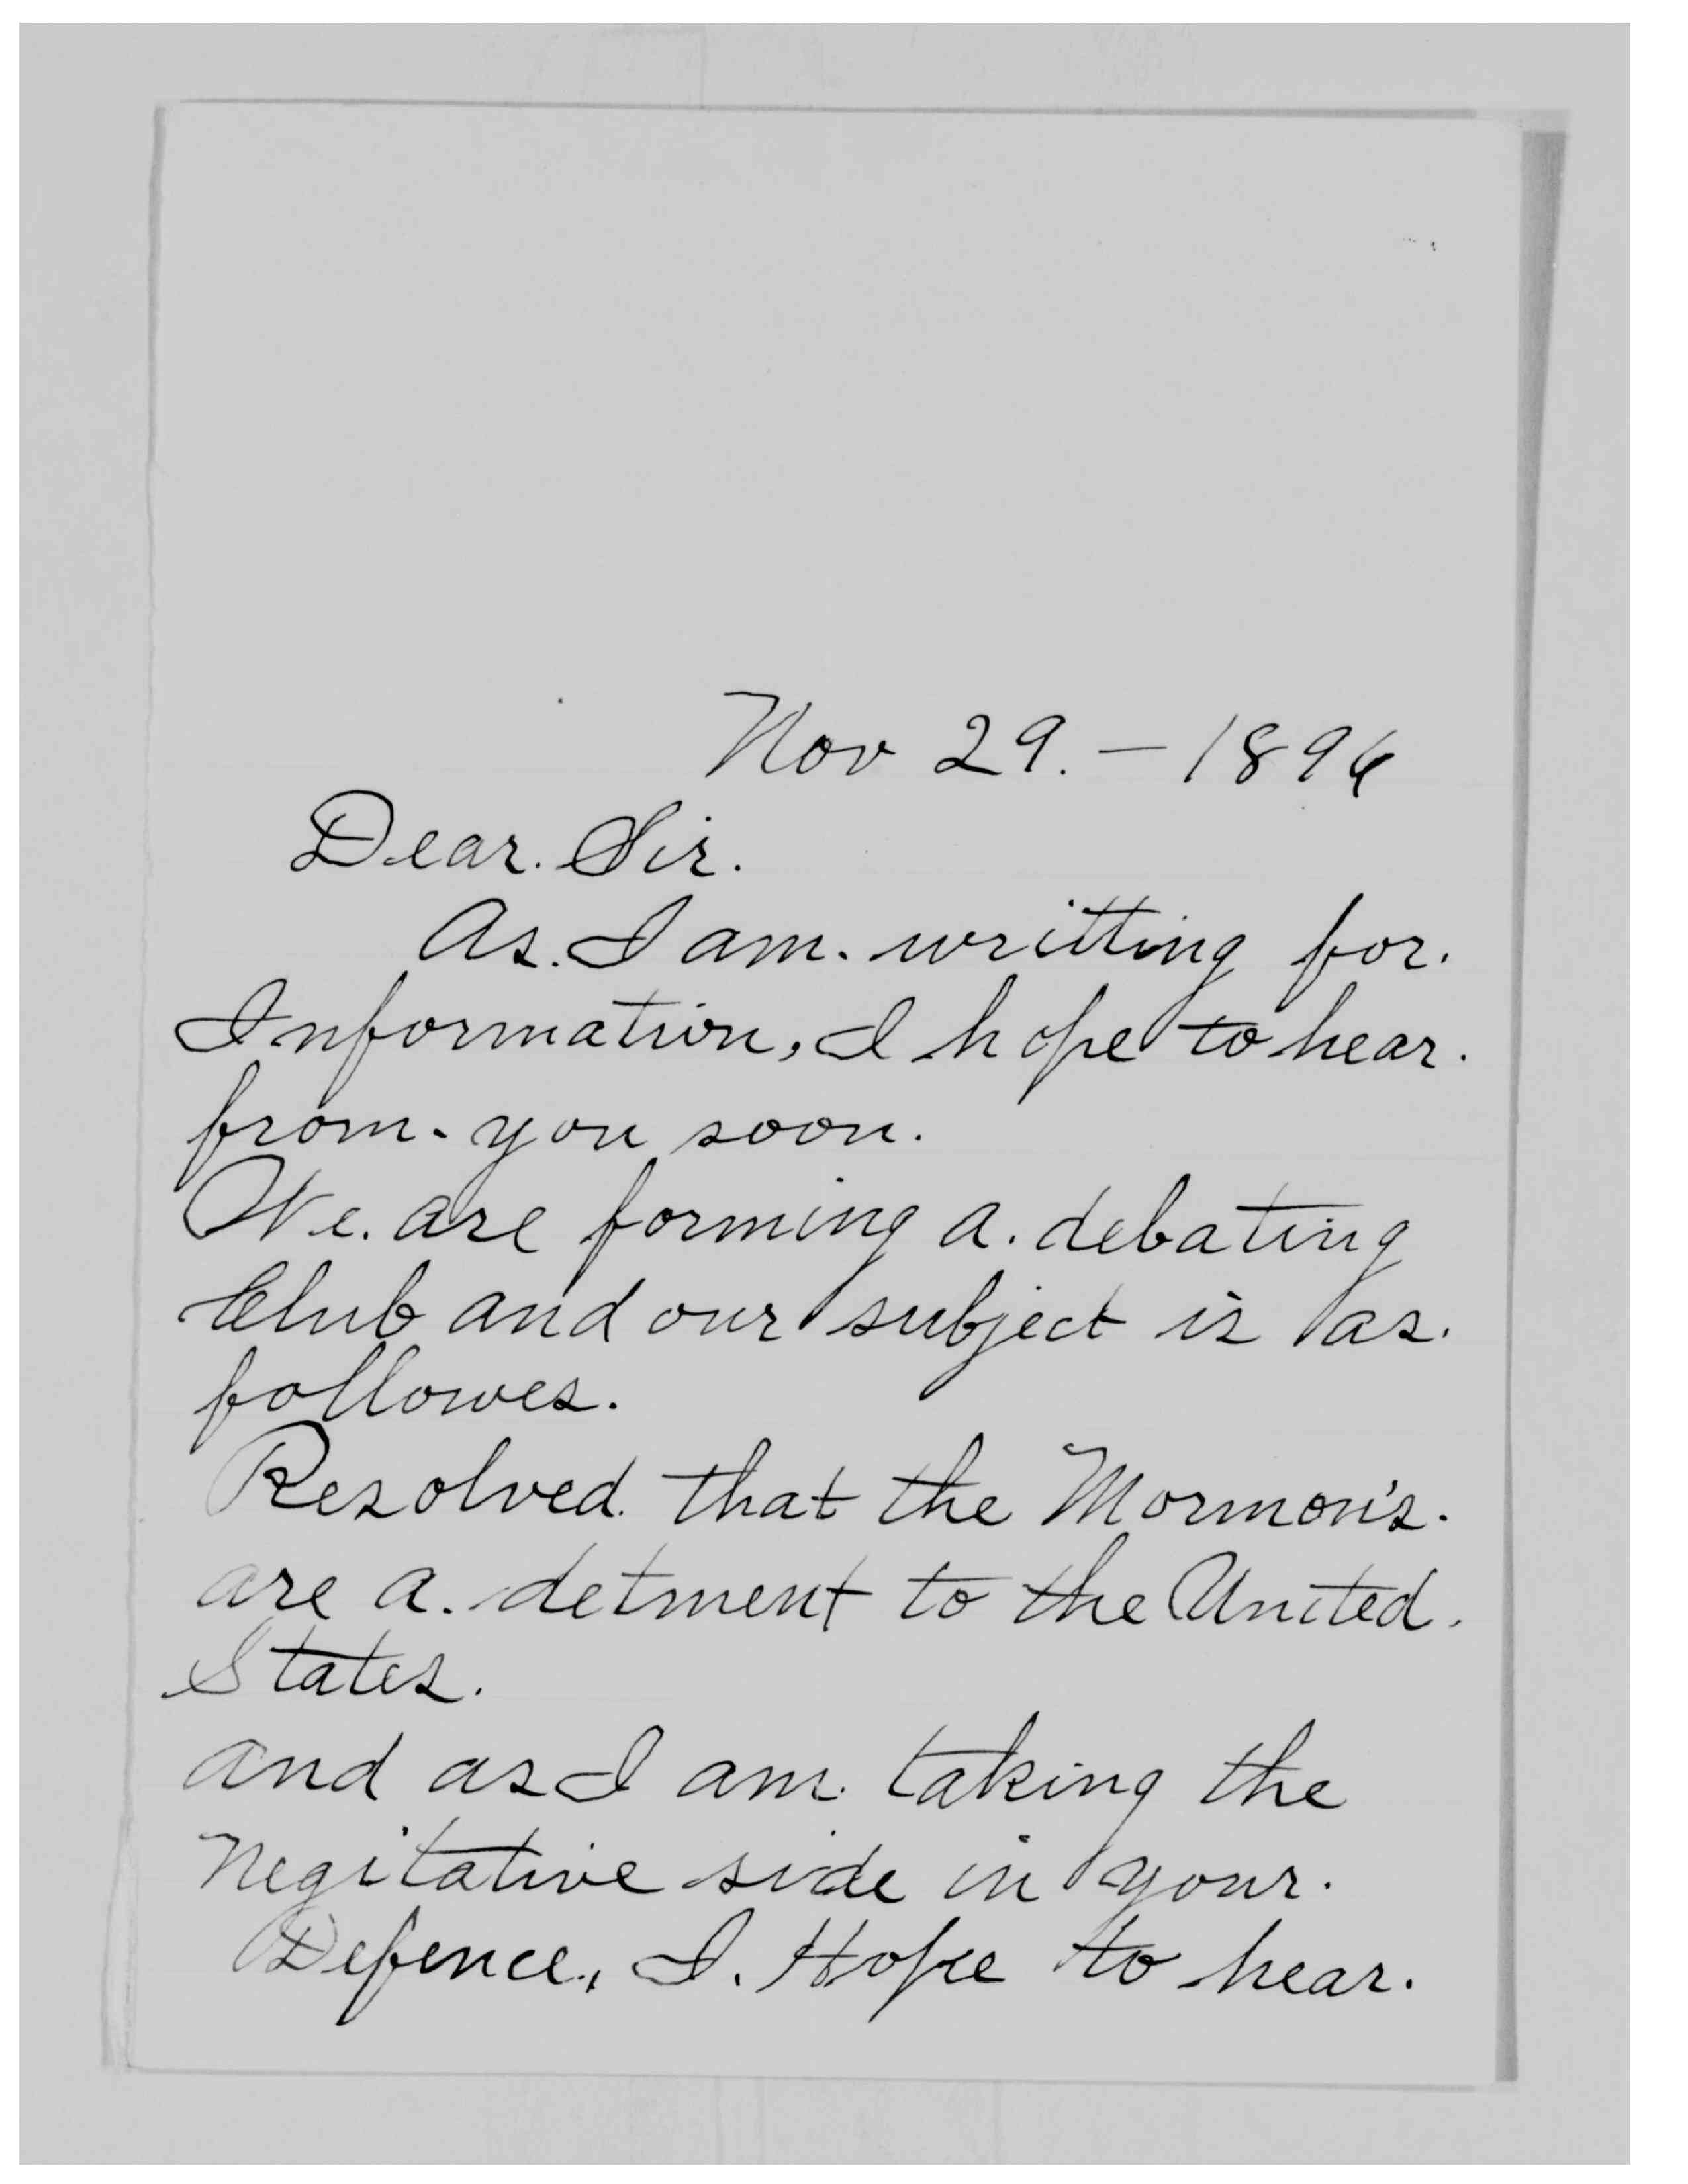 Nov 29. – 1896
Dear. Sir.
As. I am. writting for.
Information, I hope to hear.
from. you soon.
We. are forming a. debating
Club and our subject is as.
followes.
Resolved. that the Mormon's.
are a. detment to the United.
States.
and as I am. taking the
Negitative side in your.
Defence., I. Hope to hear.